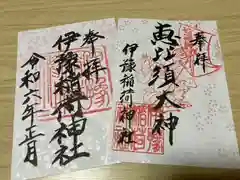 奉拝
恵比須大神
伊豫稲荷神社
奉拝
伊豫稲荷神社
令和六年正月